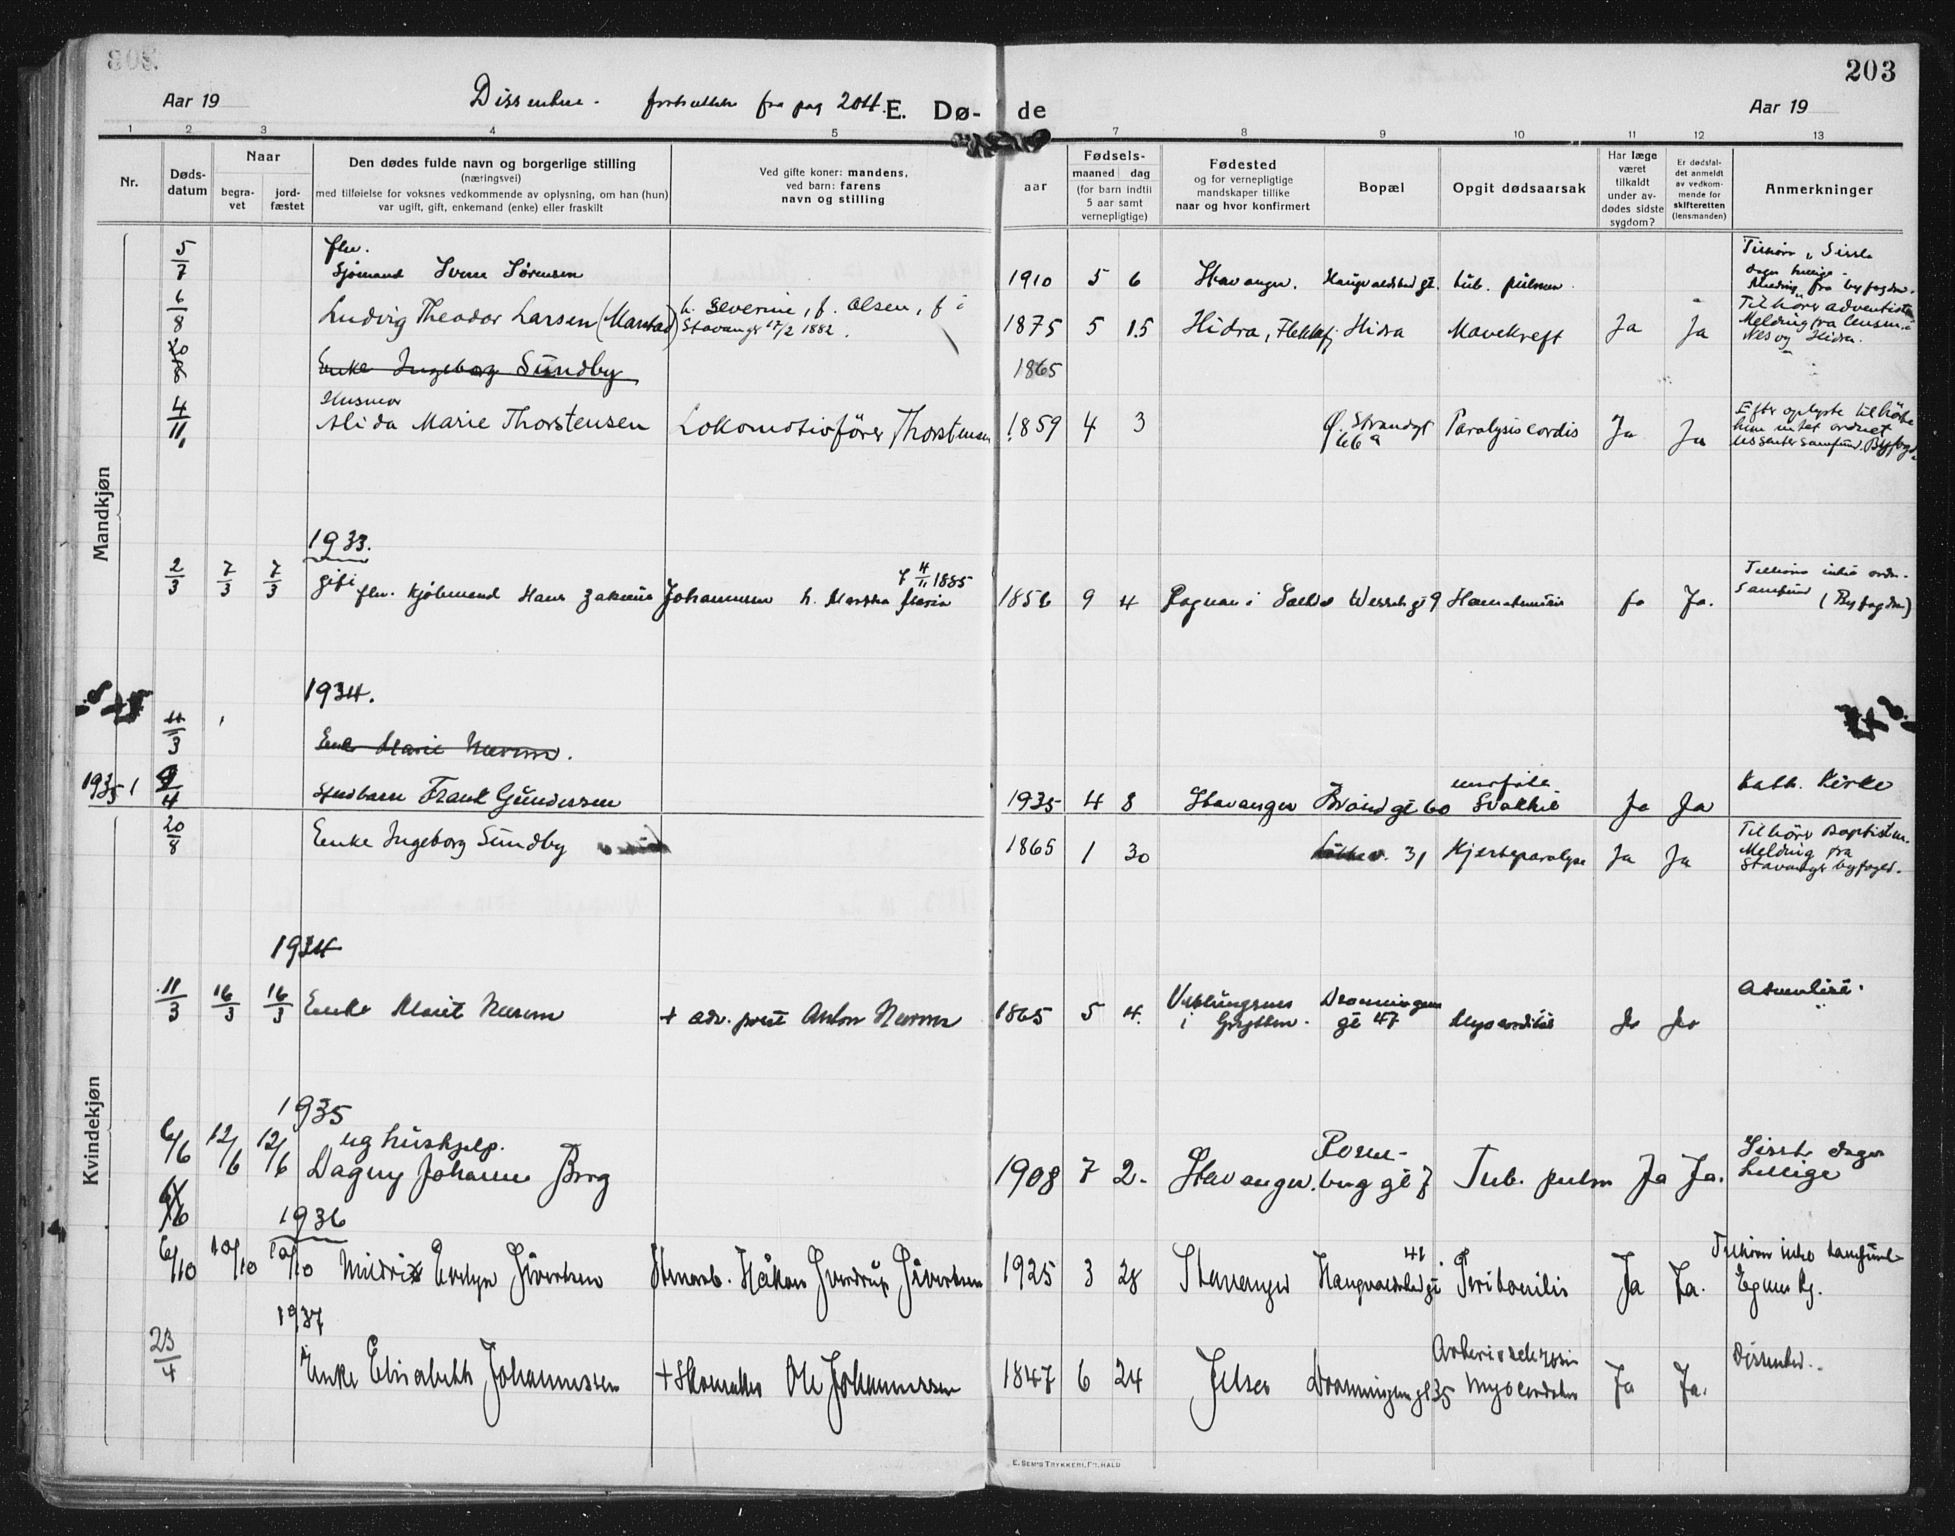 203
Aar 19
Dissentere. fortsættelse fra pag 204.
E. Dø- de
Aar 19
1 2 3 4 5 7 8 9 10 11 12 13
Nr.
Døds-
datum
Naar
begra-
vet
jord-
fæstet
Den dødes fulde navn og borgerlige stilling
(næringsvei)
med tilføielse for voksnes vedkommende av oplysning, om han (hun)
var ugift, gift, enkemand (enke) eller fraskilt
Ved gifte koner: mandens,
ved barn: farens
navn og stilling
aar
Fødsels-
maaned dag
(for barn indtil
5 aar samt
vernepligtige)
Fødested
og for vernepligtige
mandskaper tillike
naar og hvor konfirmert
Bopæl
Opgit dødsaarsak
Har læge
været
tilkaldt
under av-
dødes sidste
sygdom?
Er dødsfal-
det anmeldt
av vedkom-
mende for
skifteretten
(lensmanden)
Anmerkninger
Mandkjøn
5/7 fhv. Sjømand Sørensen 1910 5 6 Stavanger. Haugvaldstad gt. tub. pulmon.
Meldig fra byfogden.
6/8 Ludvig Theodor Larsen h. Severine, f. Olsen, f i
Stavanger 17/2 1882.
1875 5 15 Hidra, Flekkefj Hidra Mavekreft Ja Ja Tilhører adventisten
Melding fra
Nes og Hidra.
20/8 Enke Ingeborg Sundby 1865
4/11 Husmor
Alida Marie Thorstensen Lokomotivfører Thorstensen 1859 4 3 Ø. Strandgt 66a Paralysis cordis Ja Ja
Efter oplyste tilhørte
hun intet ordnet
dissentersamfund. Byfogd
1933.
2/3 7/3 7/3 gift fhv. kjøbmand Hans Zakarias Johannesen h. Martha Maria f 4/11 1885 1856 9 4 Wessels gt 9 Ja Ja.
Tilhører intet ordn.
Samfund (Byfogden)
1934.
11/3
Enke Marie Nærum.
1935 1 9/4 Spedbarn Frank Gundersen 1935 4 8 Stavanger gt 60 medfødt Svakhet Ja Ja Kath. Kirke
Kvindekjøn
20/8 Enke Ingeborg Sundby 1865 1 30 31 Hjerteparalyse Ja Ja Tilhører Baptisten.
Melding fra
Stavanger byfoged.
1934
11/3 16/3 16/3 Enke Marit Nærum + adv. prest Anton Nærum 1865 5 4. Veblungsnes
i Grytten. Dronningens
gt 47 Myocarditis Ja Ja Adventist.
1935
6/6 12/6 12/6 ug hushjelp.
Dagny Johanne Borg 1908 7 2. Stavanger. Rosen-
berg gt 7 Tub. pulm Ja Ja. Siste Dagers
hellige
6/6
1936
6/10 10/10 10/10 Mildrid Evelyn Sivertsen Stenarb. Håkon Sverdrup Sivertsen 1925 3 28 Stavanger Haugvaldstad gt 41 Peritonitis Ja Ja. Tilhører intet samfund
1937
23/4 Enke Elisabeth Johannessen + Skomaker Ole Johannessen 1847 6 24 Jelsa Dronningens gt 35 Arteriosclerosis
Myocarditis Ja Ja. Dissenter.
E. SEM'S TRYKKERI, FR.HALD